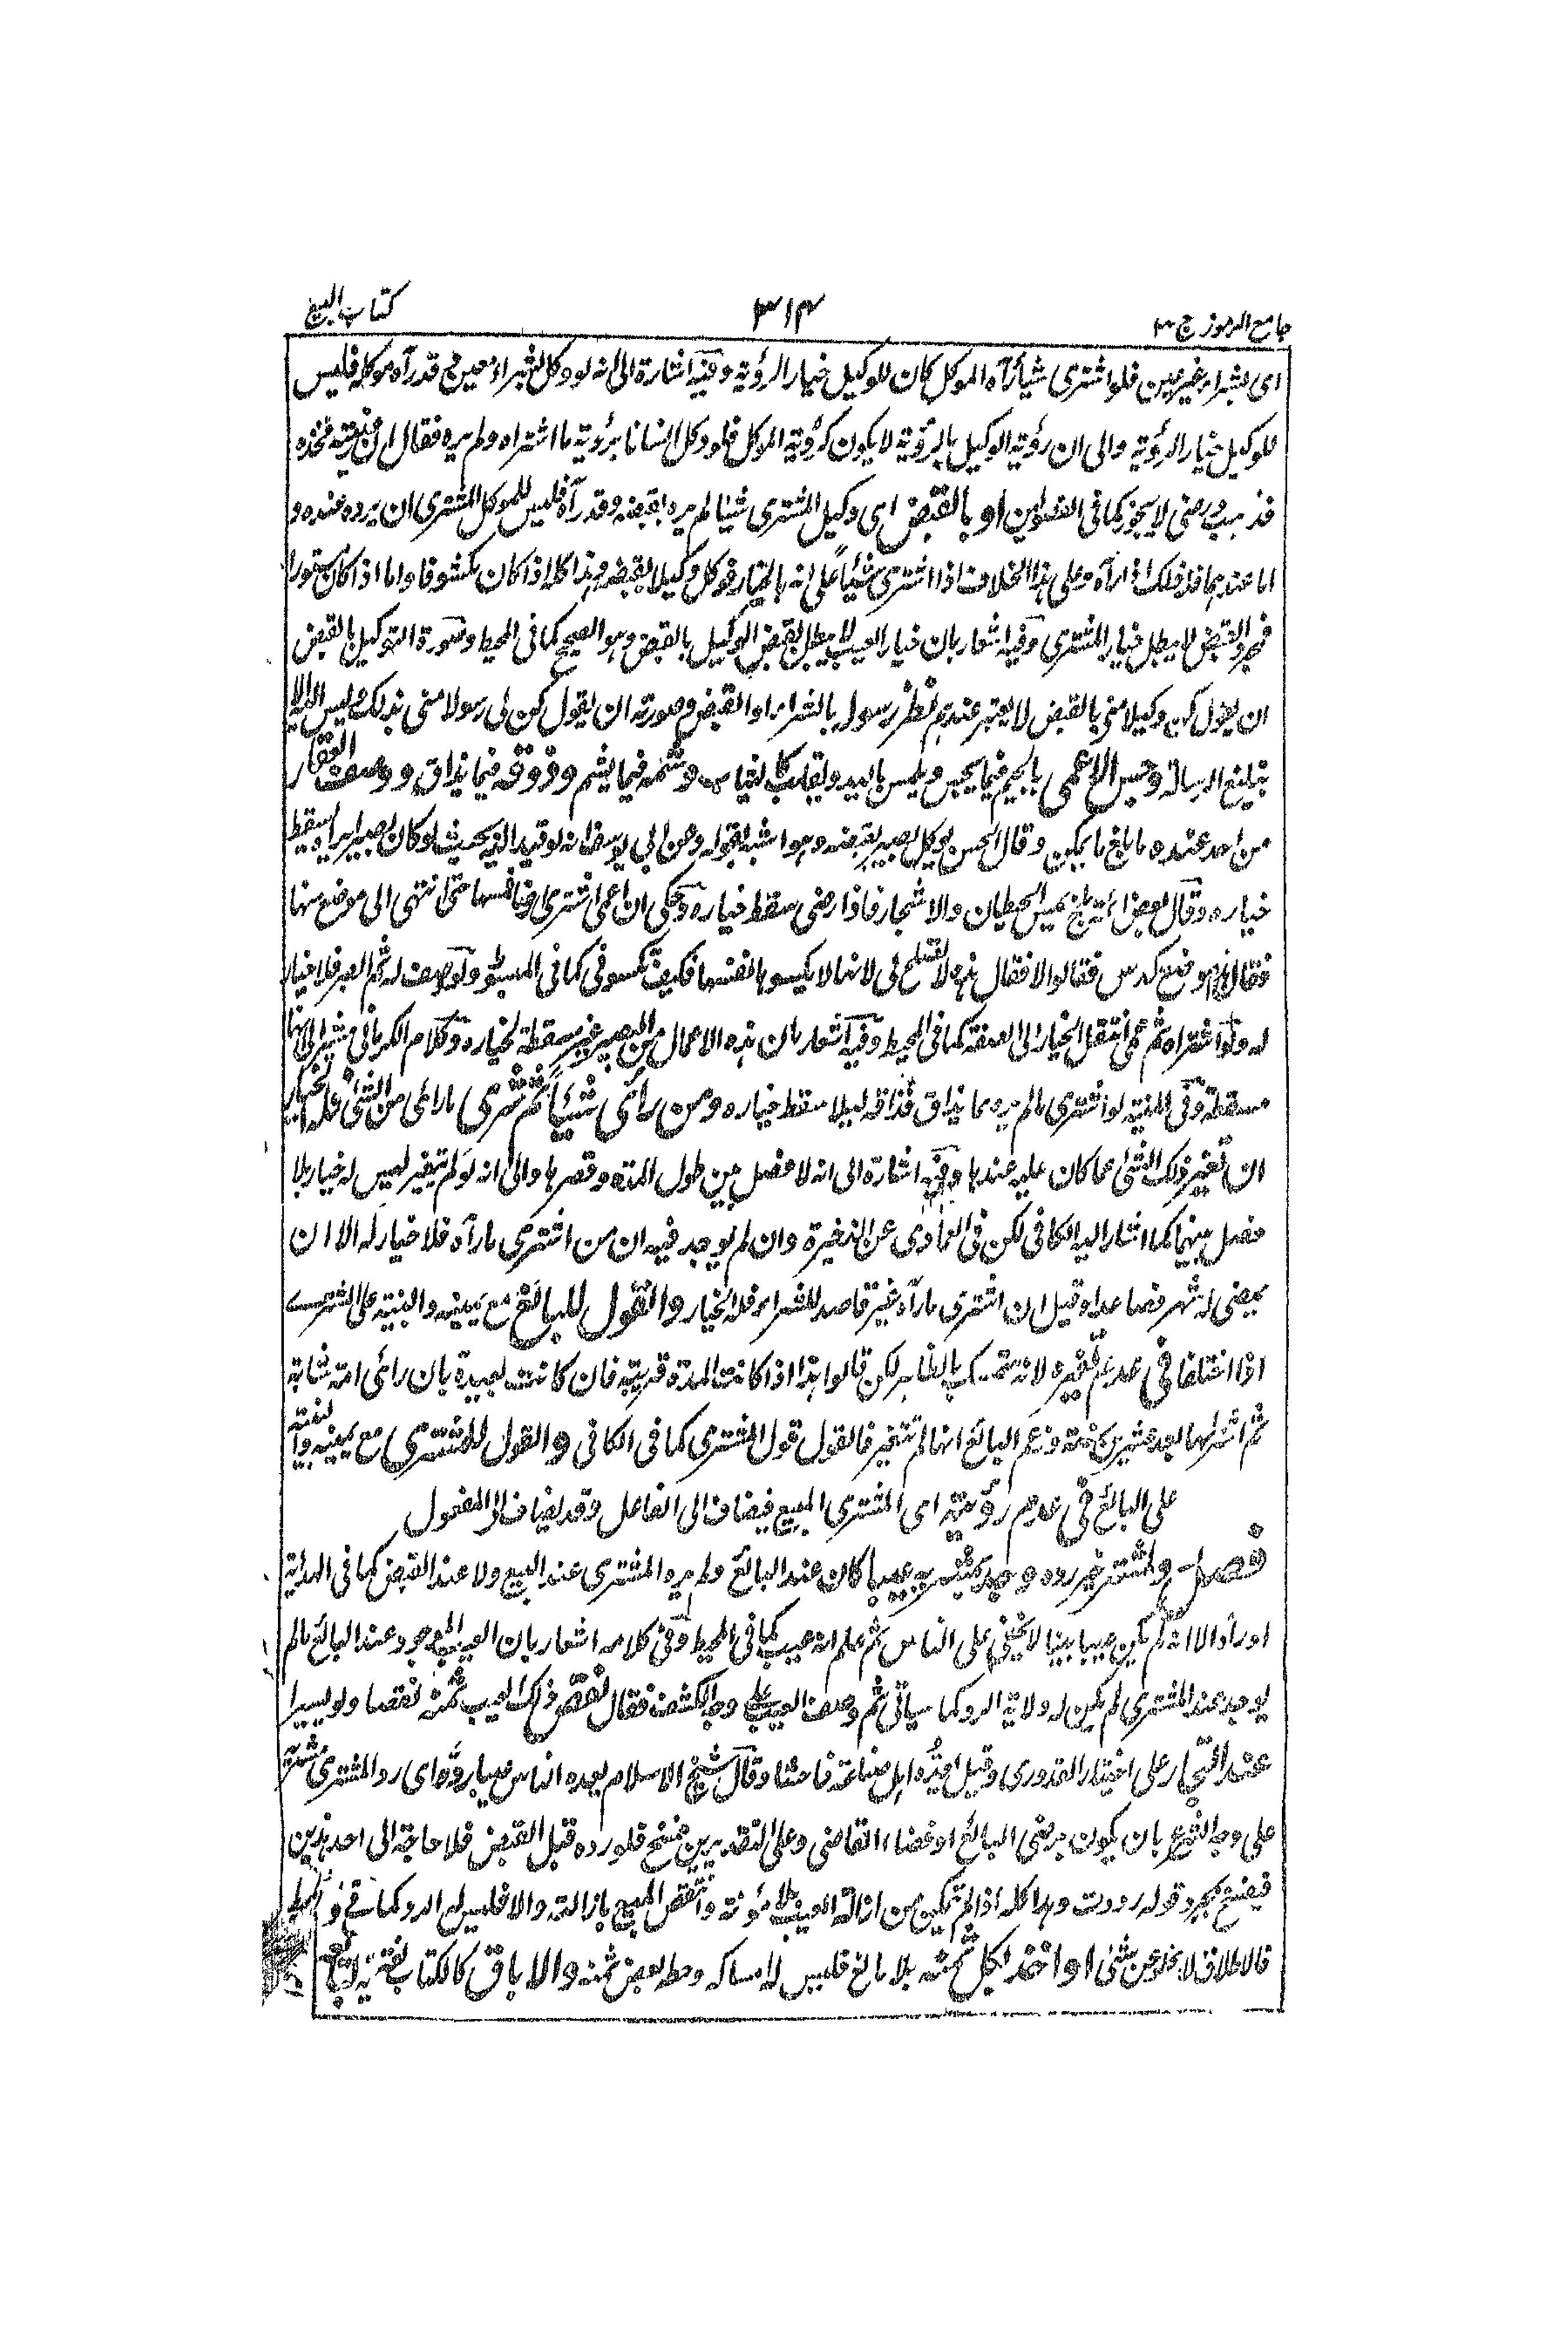 جامع الرموز ج ٣
٣١٤
كتاب البيع
اى بشراء غير عين فلو اشترى شيأ رآه الموكل كان للوكيل خيار الرؤية وفيه اشارة الى انه لو وكل بشراء معين قد رآه موكله فليس
للوكيل خيار الرؤية والى ان رؤية الوكيل بالرؤية لا يكون كرؤية الموكل فلو وكل انسانا برؤية ما اشتراه ولم يره فقال ان رضيته فخذه
فذهب ورضى لا يجوز كما فى الفصولين او بالقبض اى وكيل المشترى شيئا لم يره بقبضه وقد رآه فليس للموكل المشترى ان يرده عنده و
اما عندهما فله ذلك اذا رآه وعلى هذا الخلاف اذا اشترى شيئاً على انه بالخيار فوكل وكيلا بقبضه وهذا كله اذا كان مكشوفا واما اذا كان مستورا
فمجرد القبض لا يبطل خيار المشترى وفيه اشعار بان خيار العيب لا يبطل بقبض الوكيل بالقبض وهو الصحيح كما فى المحيط وصورة التوكيل بالقبض
ان يقول كن وكيلا منى بالقبض لا يعتبر عندهم نظر رسوله بالشراء او القبض وصورته ان يقول كن لى رسولا منى بذلك وليس اليه الا
تبليغ الرسالة وجس الاعمى بالجيم فيما يجس ويلمس باليد ويقلب كالثياب وشمه فيما يشم وذوقه فيما يذاق ووصف العقار
من احد عنده ما بلغ ما يمكن وقال الحسن يوكل بصيرا بقبضه وهو اشبه بقوله وعن ابى يوسف انه لو قيد انه بحيث لو كان بصيرا يراه سقط
خياره وقال بعض ائمة بلخ يمس الحيطان والاشجار فاذا رضى سقط خياره وحكى ان اعمى اشترى ارضا فمسها حتى انتهى الى موضع منها
فقال اهذا موضع كدس فقالوا لا فقال هذه لا تصلح لى لانها لا يكسو نفسها فكيف تكسونى كما فى المبسوط ولو وصف له ثم ابصر فلا خيار
له ولو اشتراه ثم عمى انتقل الخيار الى الصفة كما فى المحيط وفيه اشعار بان هذه الاعمال من البصير غير مسقطة لخياره وكلام الكرمانى مشير الى انها
مسقطة وفى المنية لو اشترى ما لم يره مما يذاق فذاقه ليلا سقط خياره ومن رأى شيئاً ثم شرى ما رأى من الشئ فله الخيار
ان تغير ذلك الشئ عما كان عليه عندها وفيه اشارة الى انه لا فصل بين طول المدة وقصرها والى انه لو لم يتغير ليس له خيار بلا
فصل بينهما كما اشار اليه الكافى لكن فى العمادى عن الذخيرة وان لم يوجد فيه ان من اشترى ما رآه فلا خيار له الا ان
يمضى له شهر فصاعدا وقيل ان اشترى ما رآه غير قاصد للشراء فله الخيار والقول للبائع مع يمينه والبينة على المشترى
اذا اختلفا فى عدم تغيره لانه متمسك بالظاهر لكن قالوا هذا اذا كانت المدة قريبة فان كانت بعيدة بان رأى امة شابة
ثم اشتراها بعد عشرين سنة وزعم البائع انها لم تتغير فالقول قول المشترى كما فى الكافى والقول للمشترى مع يمينه والبينة
على البائع فى عدم رؤيته اى المشترى المبيع فيضاف الى الفاعل وقد يضاف الى المفعول
فصل ولمشتر خير رده وجد بمشريه عيبا كان عند البائع ولم يره المشترى عند البيع ولا عند القبض كما فى الهداية
او رآه الا انه لم يكن عيبا بينا لا يخفى على الناس ثم علم انه عيب كما فى المحيط وفى كلامه اشعار بان العيب الموجود عند البائع ما لم
يوجد عند المشترى لم يكن له ولاية الرد كما سيأتى ثم وصف العيب على وجه الكشف فقال نقص ذلك العيب ثمنه نقصا ولو يسيرا
عند التجار على اختيار القدورى وقيل اهل صناعته فاحشا وقال شيخ الاسلام يعده الناس عيبا رده اى رد المشترى مشريه
على وجه الشرع بان يكون برضى البائع او قضاء القاضى وعلى التقديرين فسخ فلو رده قبل القبض فلا حاجة الى احد هذين
فيفسخ بمجرد قوله رددت وهذا كله اذا لم يتمكن من ازالة العيب بلا مؤنة ولا ينتقص المبيع بازالته والا فليس له الرد كما فى
فالاطلاق لا يخلو عن شئ او اخذ بكل ثمنه بلا مانع فليس له امساكه وحط بعض ثمنه والاباق كالكتاب